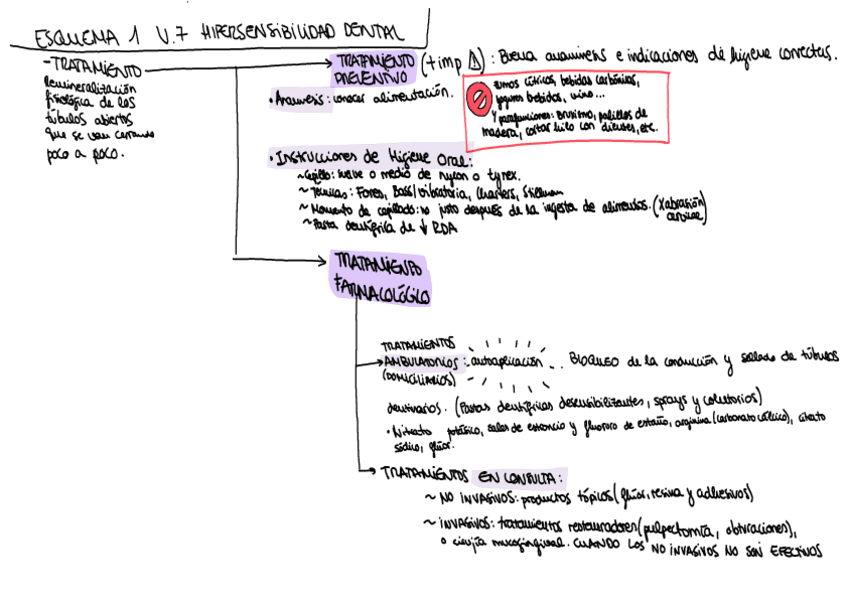 ESQUEMA 1 U.7 HIPERSENSIBILIDAD DENTAL
- TRATAMIENTO
remineralización
fisiológica de los
túbulos abiertos
que se van cerrando
poco a poco.
TRATAMIENTO
PREVENTIVO
(+ imp ⚠) : Buena anamnesis e indicaciones de higiene correctas.
• Anamnesis: conocer alimentación.
zumos cítricos, bebidas carbónicas,
yogures bebidos, vino...
Y parafunciones: Bruxismo, palillos de
madera, cortar hilo con dientes, etc.
• Instrucciones de Higiene Oral:
~ Cepillo: suave o medio de nylon o tynex.
~ Técnicas: Fones, Bass/vibratoria, Charters, Stillman
~ Momento de cepillado: no justo después de la ingesta de alimentos. (X abrasión
~ Pasta dentífrica de ↓ RDA
TRATAMIENTO
FARMACOLÓGICO
TRATAMIENTOS
AMBULATORIOS: autoaplicación... BLOQUEO de la conducción y sellado de túbulos
(DOMICILIARIOS)
dentinarios. (Pastas dentífricas desensibilizantes, sprays y colutorios)
• Nitrato potásico, sales de estroncio y fluoruro de estaño, arginina (carbonato cálcico), citrato
sódico, flúor.
TRATAMIENTOS EN CONSULTA:
~ NO INVASIVOS: productos tópicos (flúor, resina y adhesivos)
~ INVASIVOS: tratamientos restauradores (pulpectomía, obturaciones),
o cirujía mucogingival. CUANDO LOS NO INVASIVOS NO SON EFECTIVOS